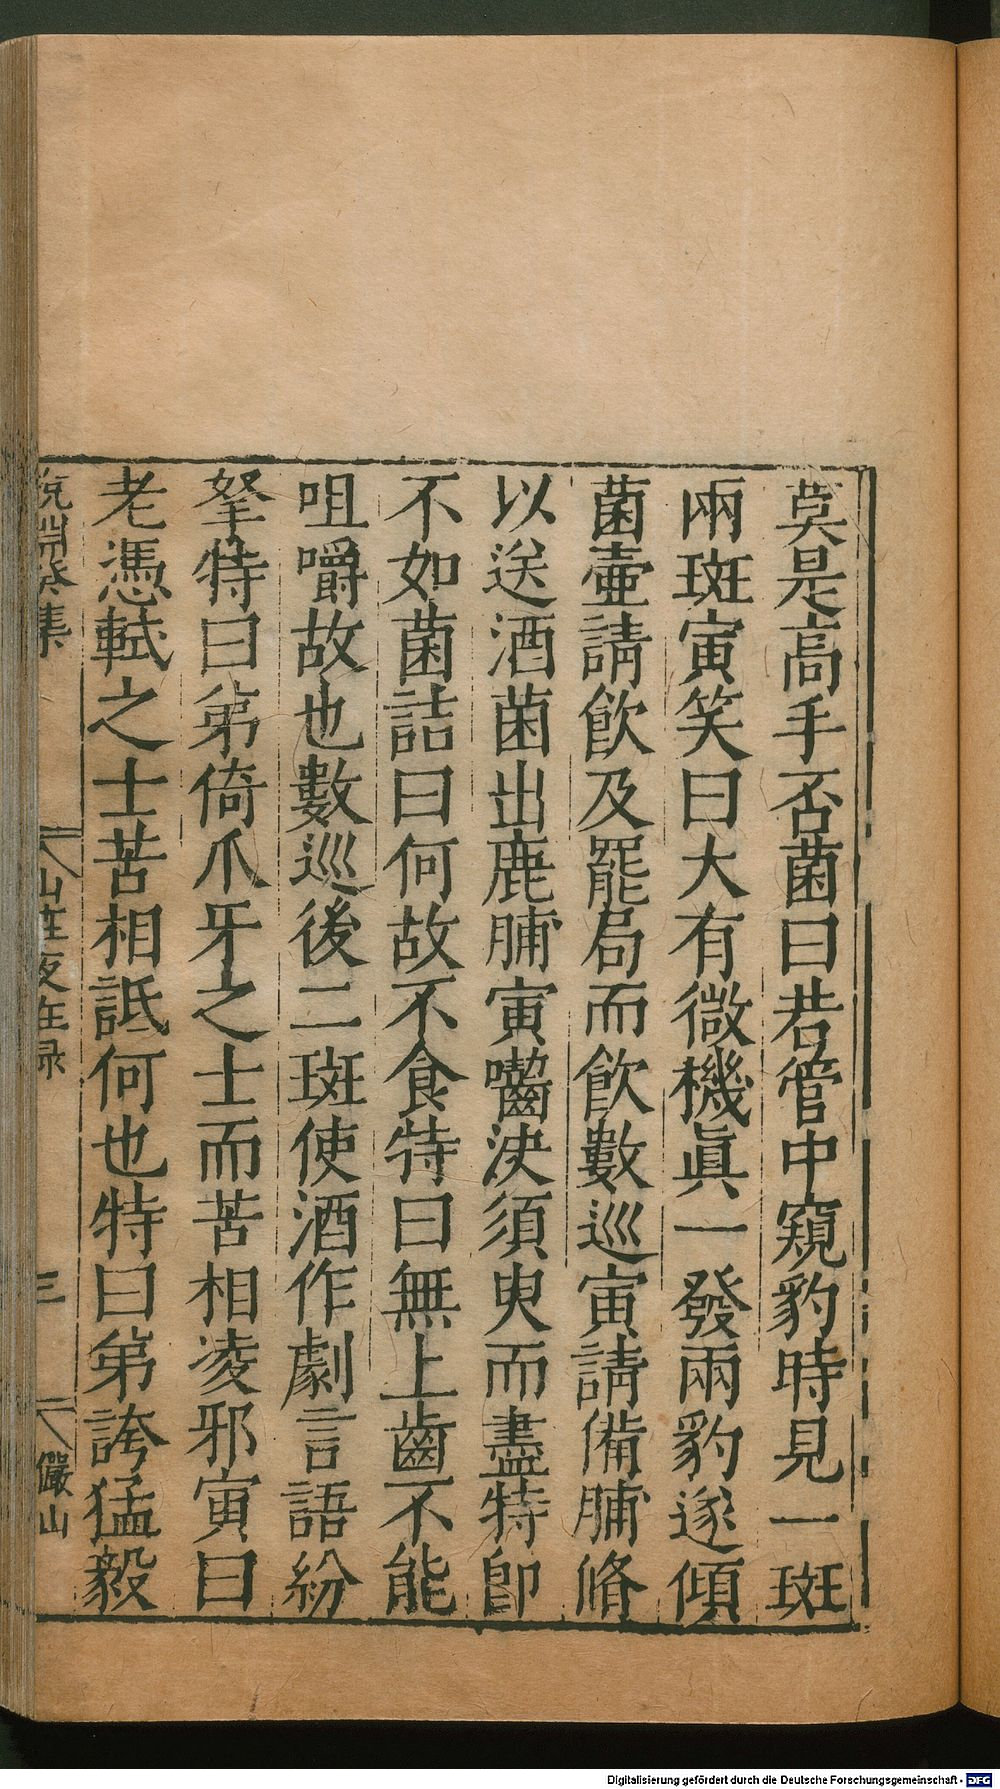 莫是高手否菌曰若管中窺豹時見一斑
兩斑寅笑曰大有微機真一發兩豹遂傾
菌壷請飲及罷局而飲數巡寅請備脯脩
以送酒菌出鹿脯寅囓決須臾而盡特卽
不如菌詰曰何故不食特曰無上齒不能
咀嚼故也數巡後二斑使酒作劇言語紛
拏特曰弟倚爪牙之士而苦相凌邪寅曰
老憑軾之士苦相詆何也特曰弟誇猛毅
說淵癸集
山莊夜
録
三
儼山
Digitalisierung gefördert durch die Deutsche Forschungsgemeinschaft - DFG